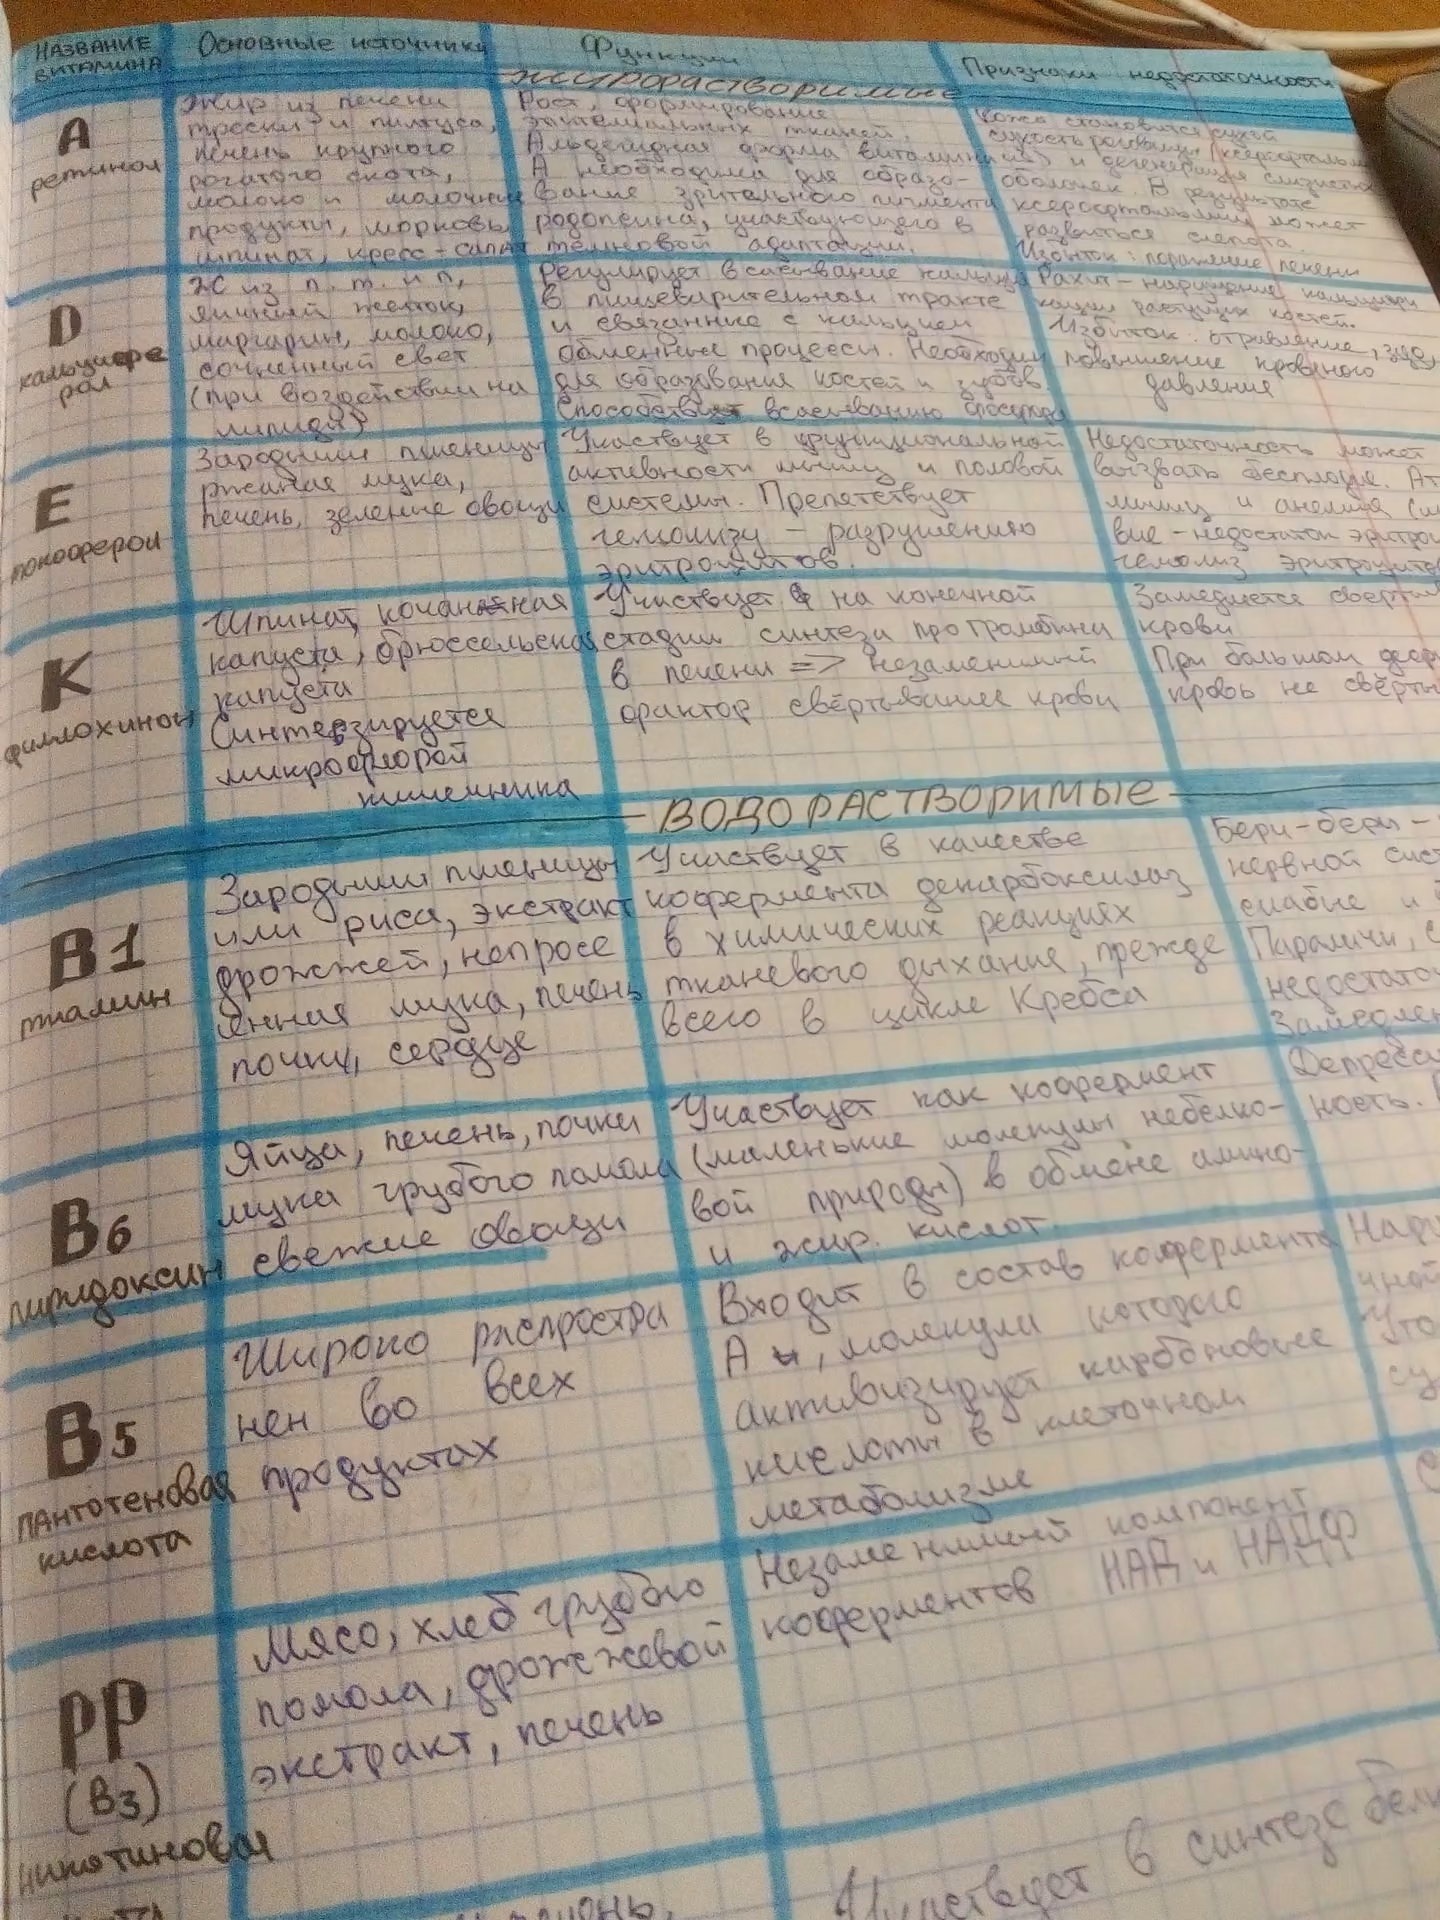 НАЗВАНИЕ
ВИТАМИНА
Основные источники
Функции
Признаки недостаточности
жирорастворимые
А
ретинол
Жир из печени
трески и палтуса,
печень крупного
рогатого скота,
молоко и молочные
продукты, морковь
шпинат, кресс-салат
Рост, формирование
эпителиальных тканей.
Альдегидная форма витамина
А необходима для образо-
вание зрительного пигмента
родопсина, участвующего в
темновой адаптации.
Кожа становится сухой
и дегенерация слизистых
оболочек. В результате
ксерофтальмии может
развиться слепота.
Избыток: поражение печени
D
кальцифе
рол
Ж из п. т. и п,
яичный желток,
маргарин, молоко,
солнечный свет
(при воздействии на
липиды)
Регулирует всасывание кальция
в пищеварительном тракте
и связанные с кальцием
обменные процессы. Необходим
для образования костей и зубов
Способствует всасыванию фосфора
Рахит - нарушение кальцифи
кации растущих костей.
Избыток: отравление,
повышение кровяного
давления
Е
токоферол
Зародыши пшеницы
ржаная мука,
печень, зеленые овощи
Участвует в функциональной
активности мышц и половой
системы. Препятствует
гемолизу - разрушению
эритроцитов.
Недостаточность может
вызвать бесплодие. Ат
мышц и анемия
вие - недостаток эритроц
гемолиз эритроцитов
К
филлохинон
Шпинат, кочанная
капуста, брюссельская
капуста
Синтезируется
микрофлорой
кишечника
Участвует на конечной
стадии синтеза протромбина
в печени => незаменимый
фактор свёртывания крови
Замедляется сверты
крови
При большом дефи
кровь не свёрты
ВОДОРАСТВОРИМЫЕ
В1
тиамин
Зародыши пшеницы
или риса, экстракт
дрожжей, непросе
янная мука, печень
почки, сердце
Участвует в качестве
кофермента декарбоксилаз
в химических реакциях
тканевого дыхания, прежде
всего в цикле Кребса
Бери-бери -
нервной сист
слабые и б
Параличи, с
недостаточ
Замедлен
В6
пиридоксин
Яйца, печень, почки
мука грубого помола
свежие овощи
Участвует как кофермент
(маленькие молекулы небелко-
вой природы) в обмене амино-
и жир. кислот.
Депресси
ность.
В5
ПАНтотеновая
кислота
Широко распростра
нен во всех
продуктах
Входит в состав кофермента
А, молекула которого
активизирует карбоновые
кислоты в клеточном
метаболизме
Нару
чной
Уто
су
РР
(В3)
никотиновая
Мясо, хлеб грубого
помола, дрожжевой
экстракт, печень
Незаменимый компонент
коферментов НАД и НАДФ
Участвует в синтезе бел